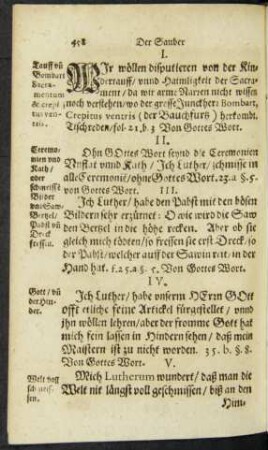 458 Der Sauber
I.
Tauff vñ Bombart Sacramentum & crepitus ventris.
WIr wöllen disputieren von der Kindertauff / vnnd Haimligkeit der Sacrament / da wir arme Narren nicht wissen noch verstehen / wo der grosse Junckher: Bombart, Crepitus ventris (der Bauchfurs) herkombt. Tischreden / fol. 21, b. 3 Von Gottes Wort.
II.
Ceremonien vnd Rath / oder schmeissē
Ohn GOttes Wort seynd die Ceremonien Vnflat vnnd Kath / Ich Luther / schmisse in alle Ceremoniē / ohne Gottes Wort. 23. a §. 5. von Gottes Wort.
III.
Bilder vnd Saw-Bertzel / Papst vñ Dreck
Ich Luther / habe den Papst mit den bösen Bildern sehr erzürnet: O wie wird die Saw den Bertzel in die höhe recken. Aber ob sie gleich mich tödten / so fressen sie erst Dreck / so der Papst / welcher auff der Saw in reit / in der Hand hat. f. 25. a §. 5. Von Gottes Wort.
IV.
Gott / vñ der Hinder.
Ich Luther / habe vnserm HErrn GOtt offt etliche feine Artickel fürgestellet / vnnd ihn wöllen lehren / aber der fromme Gott hat mich fein lassen in Hindern sehen / daß mein Maistern ist zu nicht worden. 35. b. §. 8. Von Gottes Wort.
V.
Welt voll schmeissen.
Mich Lutherum wundert / daß man die Welt nit längst voll geschmissen / biß an den
Him-